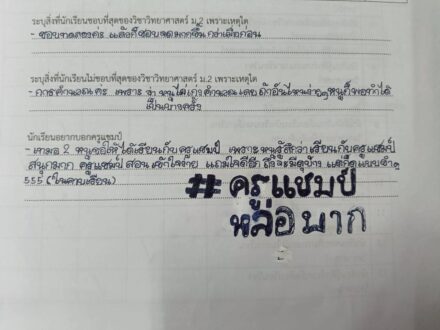 ระบุสิ่งที่นักเรียนชอบที่สุดของวิชาวิทยาศาสตร์ ม.2 เพราะเหตุใด
- ชอบทดลองคะ แล้วก็ชอบ
ระบุสิ่งที่นักเรียนไม่ชอบที่สุดของวิชาวิทยาศาสตร์ ม.2 เพราะเหตุใด
- การคำนวณคะ เพราะว่าหนูไม่เก่งคำนวณเลย ถ้าอันไหนง่ายๆหนูก็พอทำได้
เป็นบางครั้ง
นักเรียนอยากบอกครูแชมป์
- เทอม 2 หนูขอให้ได้เรียนกับครูแชมป์ เพราะหนูรู้สึกว่าเรียนกับครูแชมป์
สนุกมาก ครูแชมป์สอนเข้าใจง่าย แถมใจดีอีก ถึงจะมีดุบ้าง แต่ก็ดุแบบขำๆ
555 (ในคาบเรียน)
#ครูแชมป์
หล่อมาก